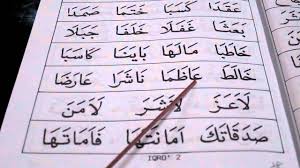 عَقَدَا كَسَبَا حَمَدَا صَمَدَا
بَعَثَا غَفَلَا خَلَقَا جَبَلَا
خَاطَبَا مَالَهَا بَايَنَا كَاسَبَا
خَالَطَ عَاظَمَا نَاشَرَا عَارَضَا
لَاعَزَ لَاشَرَ لَامَنَ
صَدَقَاتَكَ اَمَانَتَهَا فَاَمَاتَهَا
IQRO' 2